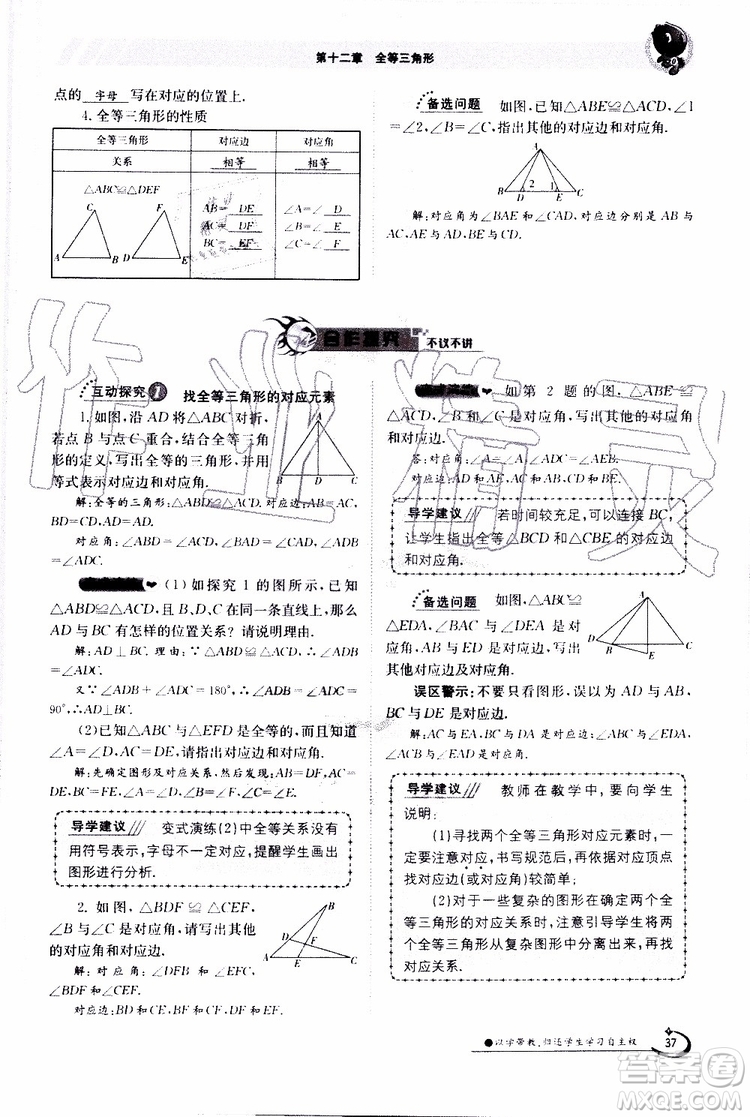 第十二章 全等三角形
点的 字母 写在对应的位置上.
4. 全等三角形的性质
全等三角形 对应边 对应角
关系 相等 相等
△ABC≌△DEF
AB= DE ∠A=∠ D
AC= DF ∠B=∠ E
BC= EF ∠C=∠ F
C F
A B D E
备选问题 如图,已知△ABE≌△ACD,∠1
=∠2,∠B=∠C,指出其他的对应边和对应角.
A
2 1
B D E C
解:对应角为∠BAE和∠CAD,对应边分别是AB与
AC,AE与AD,BE与CD.
合作探究 不议不讲
互动探究1 找全等三角形的对应元素
1. 如图,沿AD将△ABC对折,
若点B与点C重合,结合全等三角
形的定义,写出全等的三角形,并用
等式表示对应边和对应角.
A
B D C
解:全等的三角形:△ABD≌△ACD.对应边:AB=AC,
BD=CD,AD=AD.
对应角:∠B=∠C,∠BAD=∠CAD,∠ADB
=∠ADC.
(1)如探究1的图所示,已知
△ABD≌△ACD,且B、D、C在同一条直线上,那么
AD与BC有怎样的位置关系?请说明理由.
解:AD⊥BC.理由:∵△ABD≌△ACD,∴∠ADB=
∠ADC.
又∵∠ADB+∠ADC=180°,∴∠ADB=∠ADC=
90°,∴AD⊥BC.
(2)已知△ABC与△EFD是全等的三角形,
∠A=∠D=∠E,请指出对应边和对应角.
解:先确定图形及对应关系,然后发现
BC=FE,AB=
导学建议 变式演练(2)中全等关系没有
用符号表示,字母不一定对应,提醒学生画出
图形进行分析.
2. 如图,△BDF≌△CEF,
∠B与∠C是对应角,请写出其他
的对应角和对应边.
B
D
F
A E C
解:对应角:∠DFB和∠EFC、
∠BDF和∠CEF.
对应边:BD和CE、BF和CF、DF和EF.
如第2题的图,△ABE≌
△ACD,∠B与∠C是对应角,写出其他的对应角
和对应边.
答:对应角:∠A和∠A、∠ADC和∠AEB.
对应边:AD和AE、AC和AB、CD和BE.
导学建议 若时间较充足,可以连接BC,
让学生指出全等△BCD和△CBE的对应边
和对应角.
备选问题 如图,△ABC≌
△EDA,∠BAC与∠DEA是对
应角,AB与ED是对应边,写出
其他对应边及对应角.
A
B D C
E
误区警示:不要只看图形,误以为AD与AB、
BC与DE是对应边.
解:AC与EA、BC与DA是对应边,∠ABC与∠EDA、
∠ACB与∠EAD是对应角.
导学建议 教师在教学中,要向学生
说明:
(1)寻找两个全等三角形对应元素时,一
定要注意对应,书写规范后,再根据对应顶点
找对应边(或对应角)比较简单.
(2)对于一些复杂的图形在确定两个全
等三角形的对应关系时,注意引导学生将两
个全等三角形从复杂图形中分离出来,再找
对应关系.
●以学带教,归还学生学习自主权
37
作业精灵
答案圈
MXQE.COM